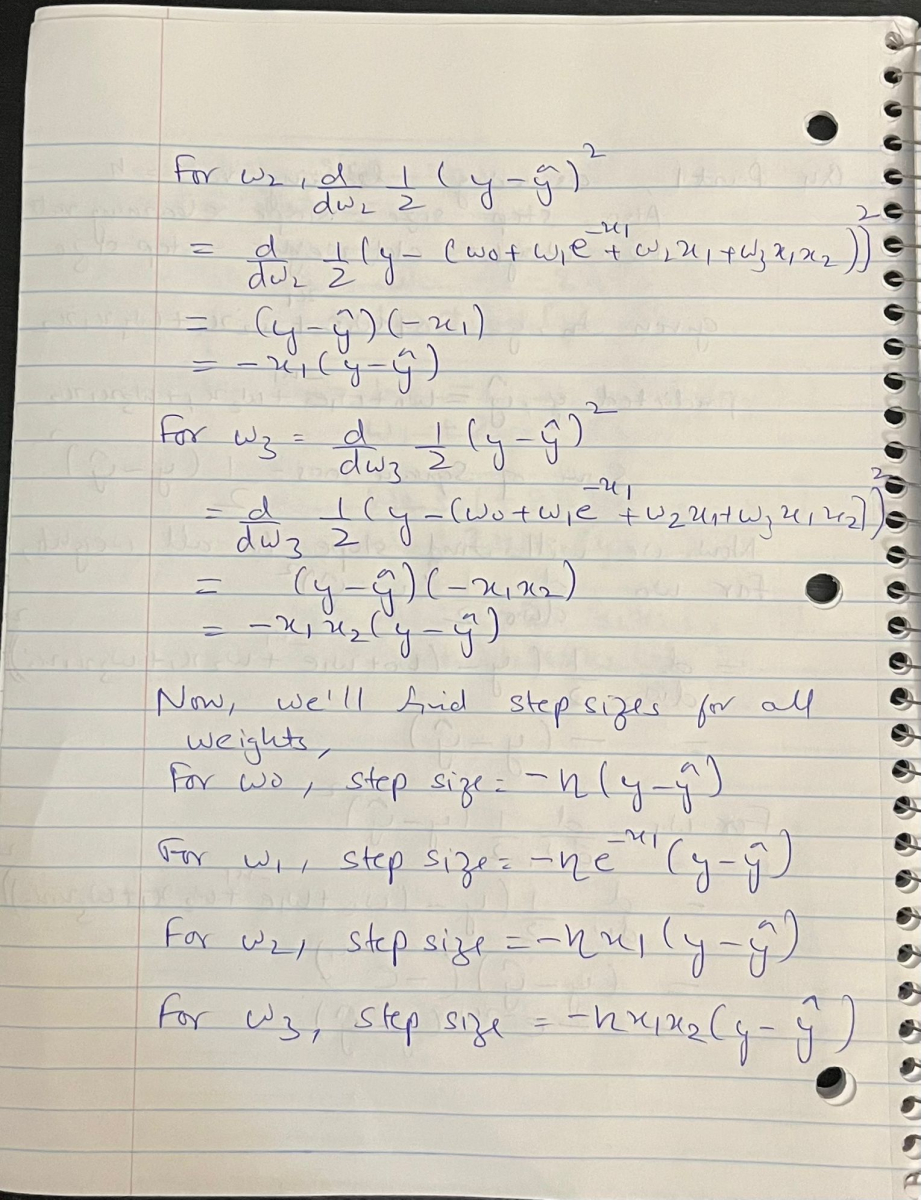 For w₂, d/dw₂ 1/2 (y-ŷ)²
= d/dw₂ 1/2 (y - (w₀+w₁e^-x₁ + w₂x₁+w₃x₁x₂))²
= (y-ŷ)(-x₁)
= -x₁(y-ŷ)
For w₃ = d/dw₃ 1/2 (y-ŷ)²
= d/dw₃ 1/2 (y-(w₀+w₁e^-x₁ + w₂x₁+w₃x₁x₂))²
= (y-ŷ)(-x₁x₂)
= -x₁x₂(y-ŷ)
Now, we'll find step sizes for all
weights,
For w₀, step size = -η(y-ŷ)
For w₁, step size = -ηe^-x₁(y-ŷ)
For w₂, step size = -ηx₁(y-ŷ)
For w₃, step size = -ηx₁x₂(y-ŷ)